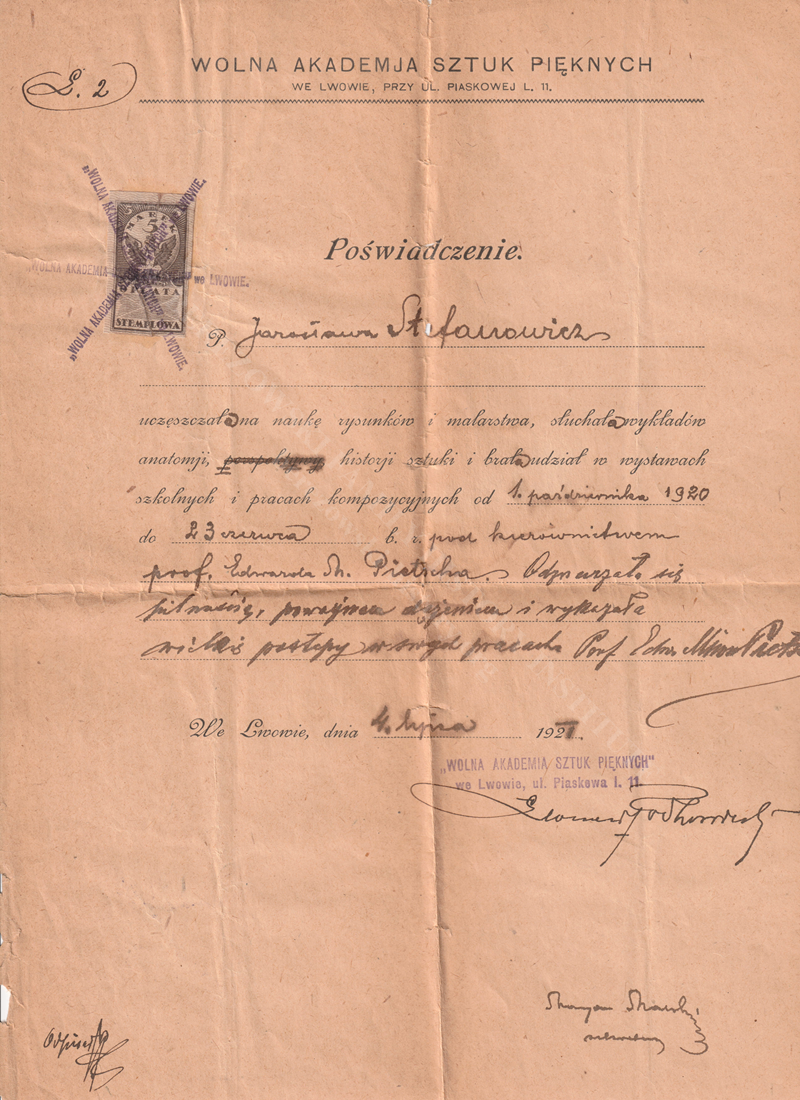 WOLNA AKADEMJA SZTUK PIĘKNYCH
WE LWOWIE, PRZY UL. PIASKOWEJ L. 11.
L. 2
"WOLNA AKADEMIA we LWOWIE.
5 MAREK 5
OPŁATA
STEMPLOWA
Poświadczenie.
P. Jarosława Stefanowicz
uczęszczała na naukę rysunków i malarstwa, słuchała wykładów
anatomji, perspektywy historji sztuki i brała udział w wystawach
szkolnych i pracach kompozycyjnych od 1. października 1920
do 23 czerwca b. r. pod kierownictwem
prof. Edwarda M. Pietscha. Odznaczała się
pilnością, i wykazała
wielkie postępy w swych pracach Prof Edw.
We Lwowie, dnia 4. lipca 1921
"WOLNA AKADEMIA SZTUK PIĘKNYCH"
we Lwowie, ul. Piaskowa l. 11.